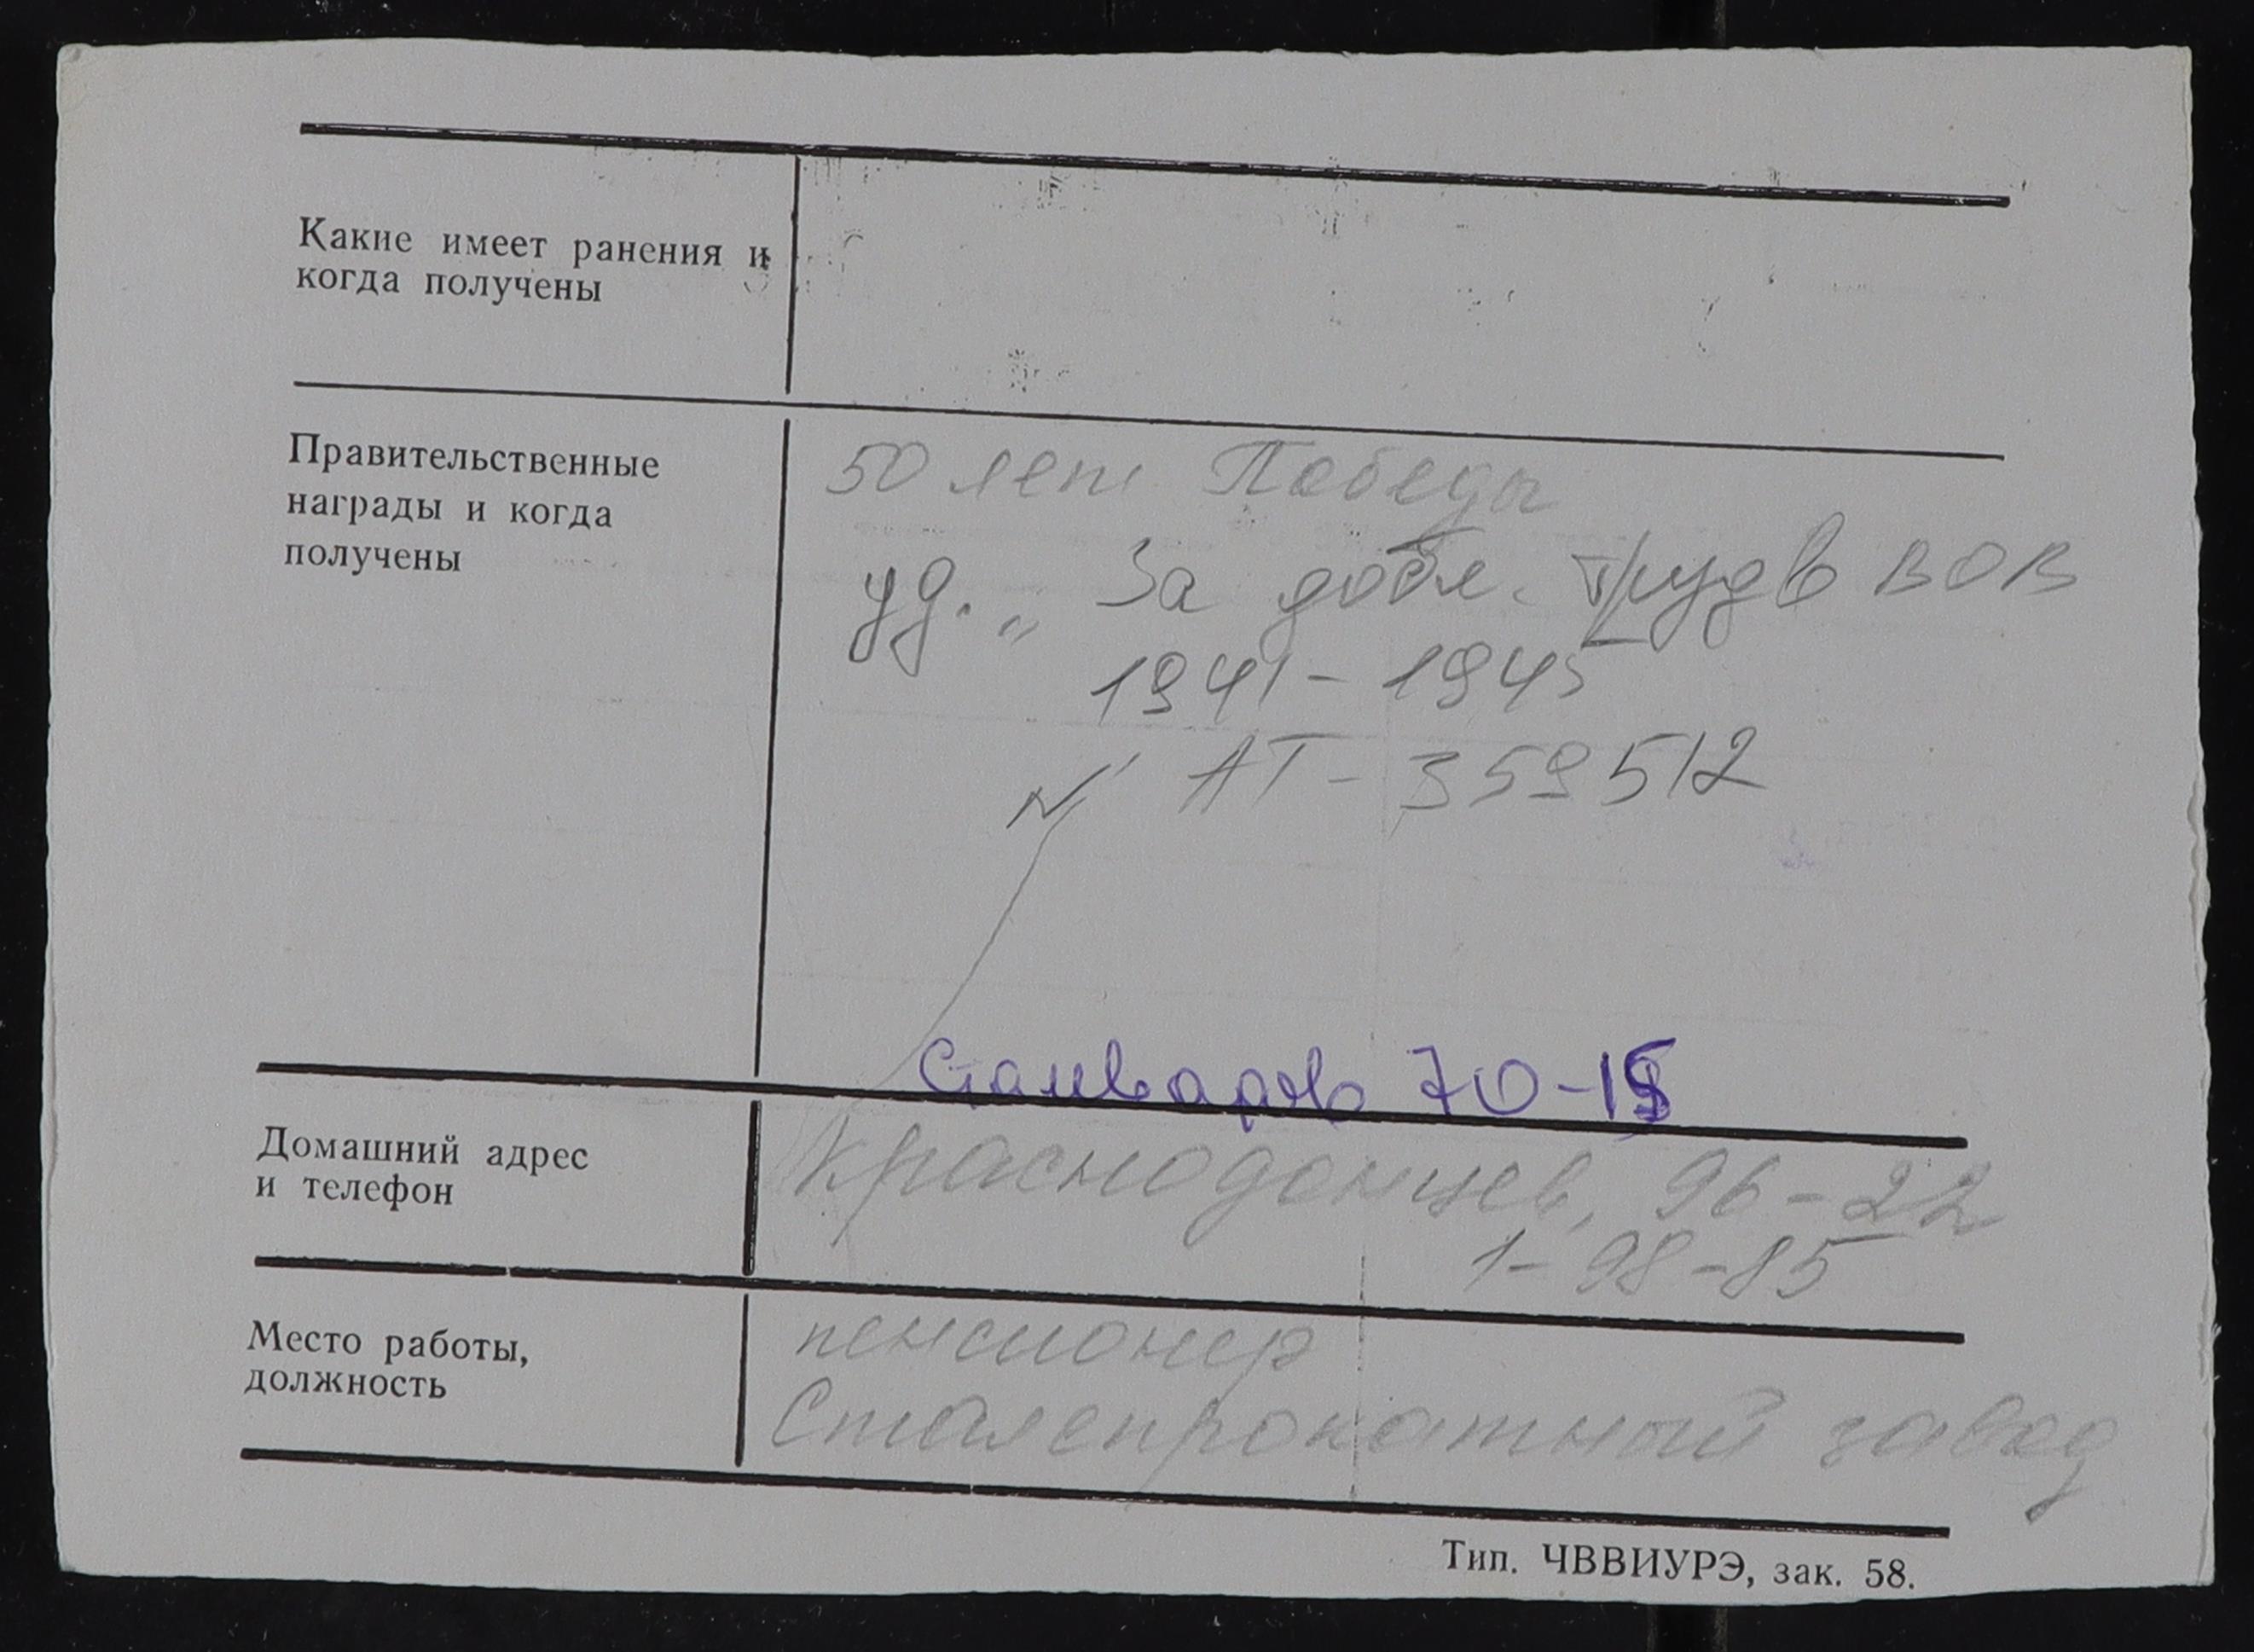 Какие имеет ранения и
когда получены
Правительственные
награды и когда
получены
50 лет Победы
уд. „ За добл. труд в ВОВ
1941-1945
N АТ-359512
70-15
Домашний адрес
и телефон
Краснодонцев, 96-22
1-98-85
Место работы,
должность
пенсионер
Сталепрокатный завод
Тип. ЧВВИУРЭ, зак. 58.